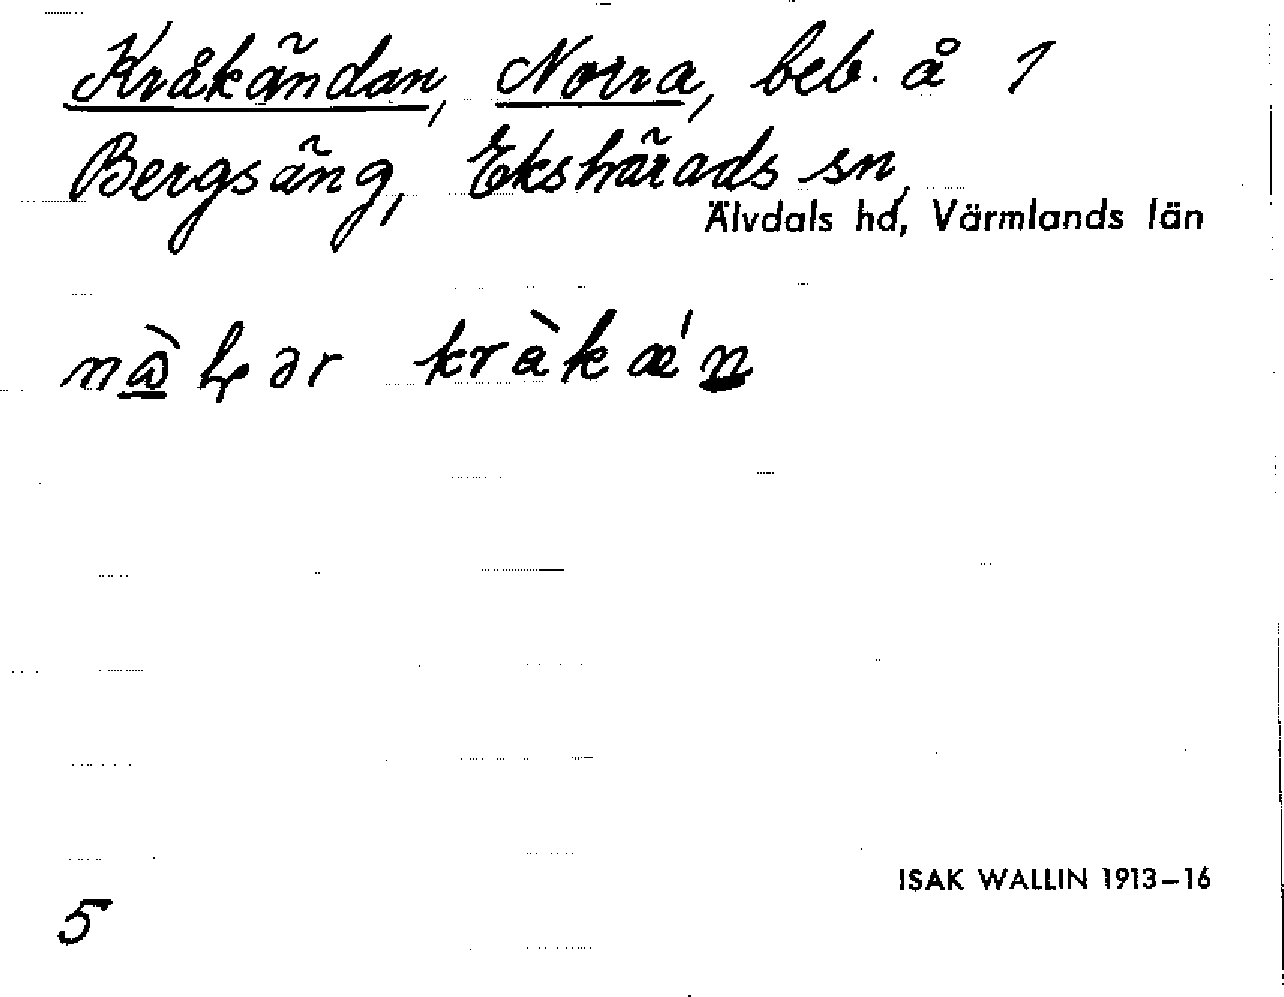 Kråkändan, Norra, beb. å 1
Bergsäng, Ekshärads sn,
Älvdals hd, Värmlands län
kràkǽn
ISAK WALLIN 1913–16
5